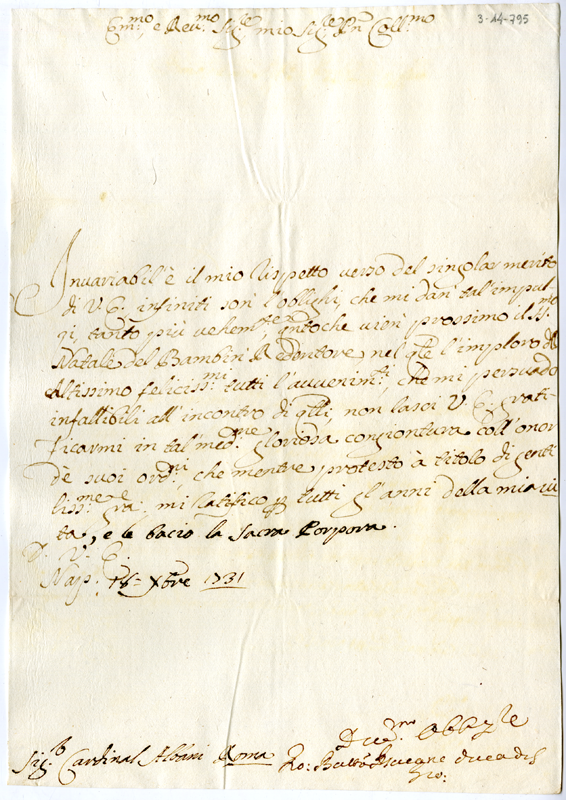 3-14-795
Em.mo e Reu.mo Sig.re mio Sig.re Pn Coll.mo
Inuariabil'è il mio rispetto uerso del singolar merito
di V. E. infiniti son l'oblighi, che mi dan tall'impul
si, tanto più uehem.te, q.ntoche uien prossimo il SS.mo
Natale del Bambin Redentore nel q.le l'imploro dall
Altissimo feliciss.mi tutti l'auuenim.ti, che mi persuado
infallibili all'incontro di q.lli, non lasci V. E. grati-
ficarmi in tal med.ma gloriosa congiontura coll'onor
de suoi ord.ni, che mentre protesto à titolo di gentil
liss.me gra.e, mi ratifico p tutti gl'anni della mia ui
ta, e le bacio la Sacra Porpora.
D. V. E.
Nap. Xbre 1731
Diu.mo Obb.
Sig.r Cardinal Albani Roma
duca di